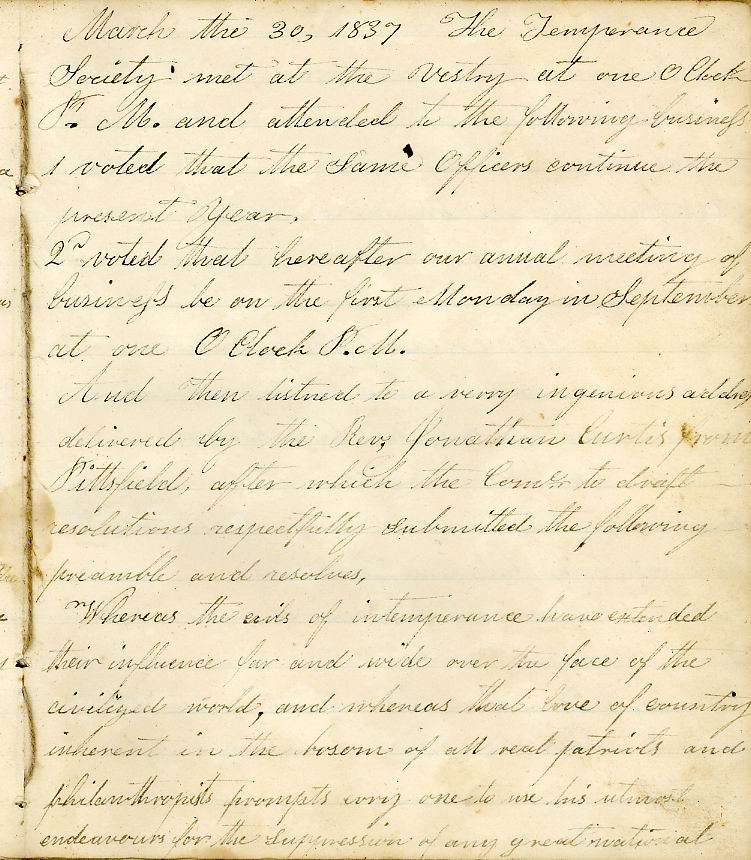 March the 30, 1837 The Temperance
Society met at the Vestry at one O Clock
P. M. and attended to the following business
1 voted that the Same Officers continue the
present Year.
2d voted that hereafter our anual meeting of
business be on the first Monday in September
at one O Clock P.M.
And then listned to a verry ingenious address
delivered by the Rev, Jonathan Curtis from
Pittsfield, after which the Comt to draft
resolutions respectfully submitted the following
preamble and resolves,
Whereas the evils of intemperance have extended
their influence far and wide over the face of the
civilized world, and whereas that love of country
inherent in the bosom of all real patriots and
philanthropists prompts evry one to use his utmost
endeavours for the suppression of any great national